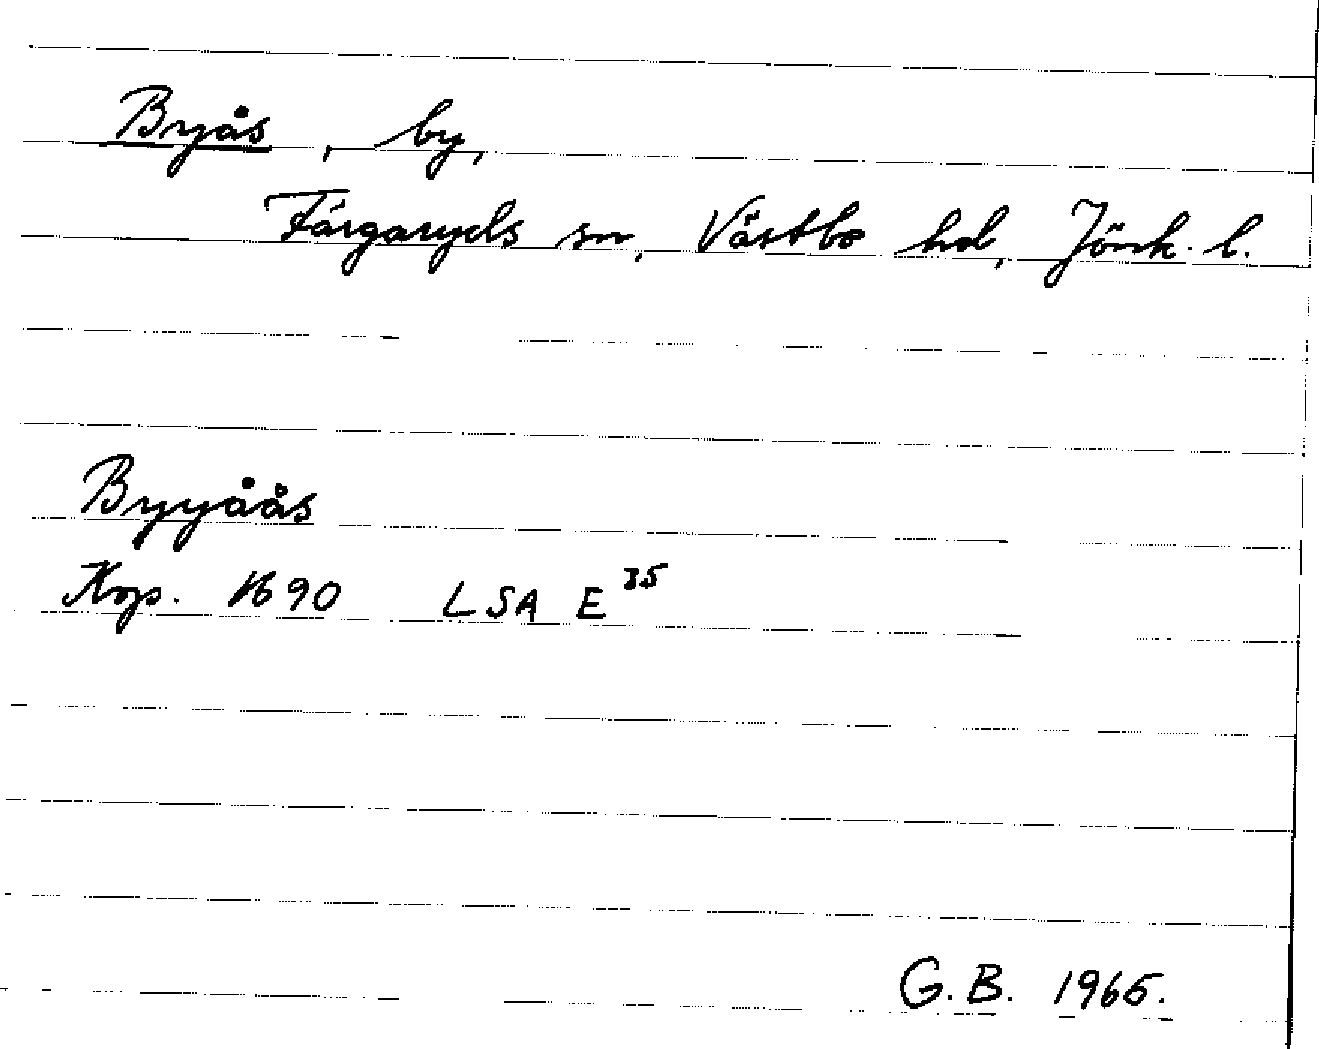 Bryås, by,
Färgaryds sn, Västbo hd, Jönk. l.
Bryyåås
Kop. 1690 LSA E 35
G.B. 1965.